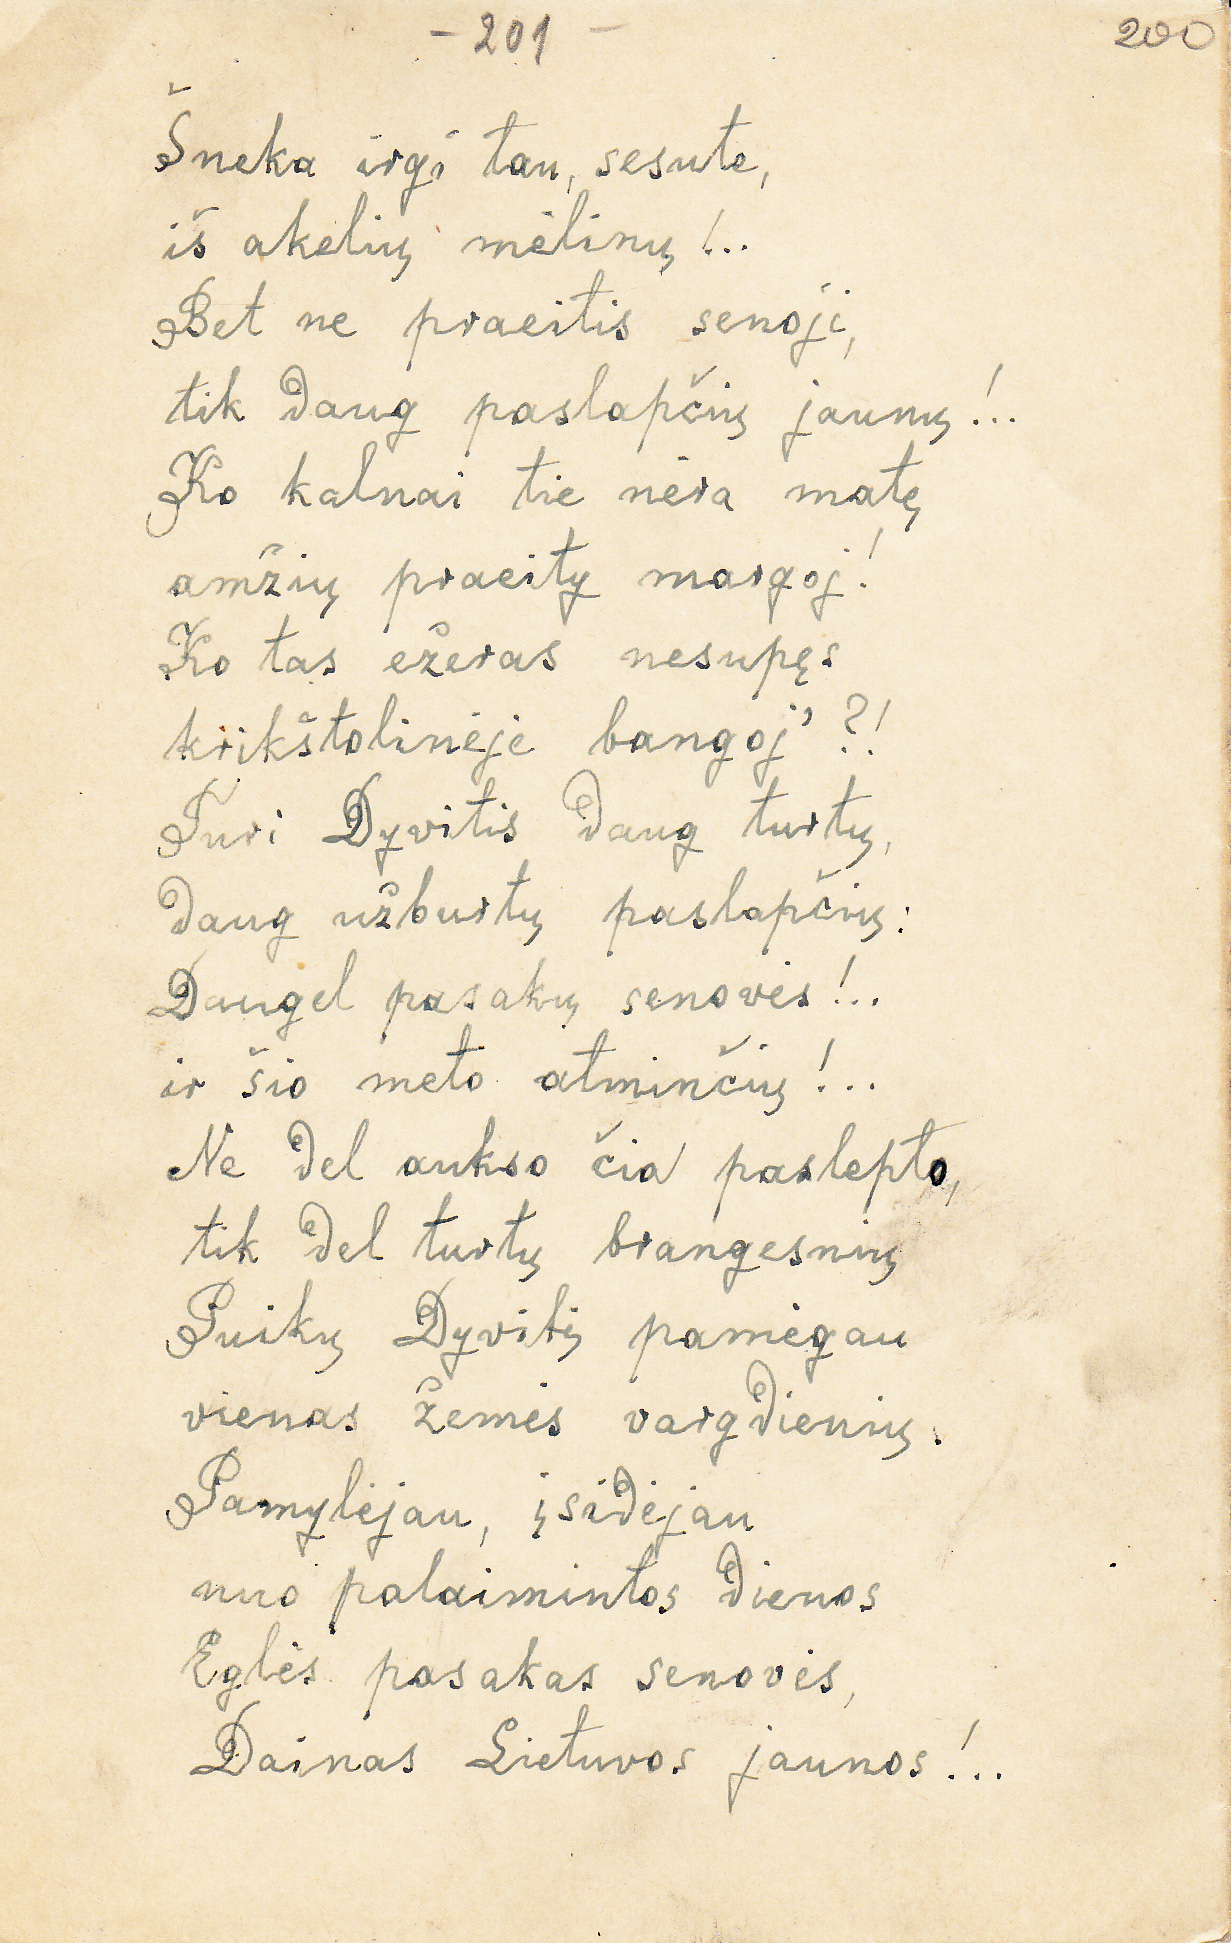 - 201 -
200
Šneka irgi tau, sesute,
iš akelių mėlinų!..
Bet ne praeitis senoji,
tik daug paslapčių jaunų!..
Ko kalnai tie nėra matę
amžių praeity margoj!
Ko tas ežeras nesupęs
krikštolinėje bangoj' ?!
Turi Dyvitis daug turtų,
daug užburtų paslapčių:
Daugel pasakų senovės!..
ir šio meto atminčių!..
Ne del aukso čia paslepto,
tik del turtų brangesnių
Puikų Dyvitį pamėgau
vienas žemės vargdienių.
Pamylėjau, įsidėjau
nuo palaimintos dienos
Eglės pasakas senovės,
Dainas Lietuvos jaunos!..